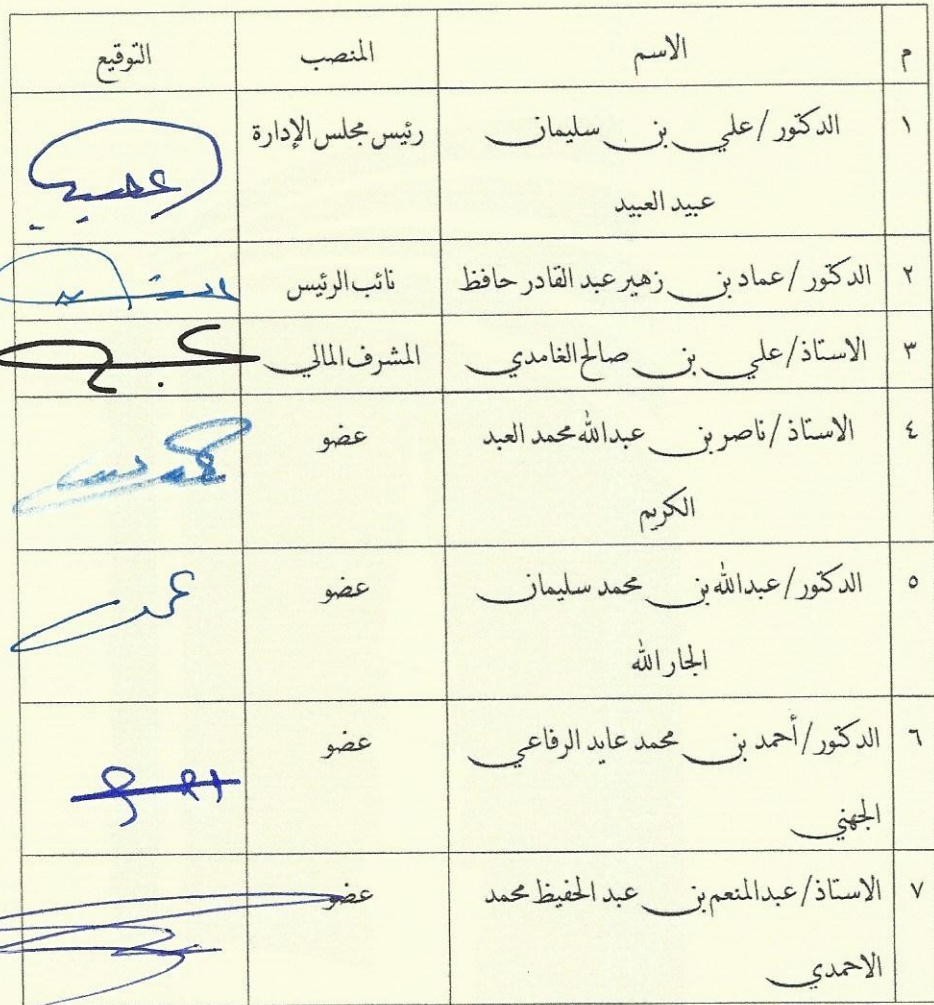 م الاسم المنصب التوقيع
١ الدكتور/علي بن سليمان رئيس مجلس الإدارة
عبيد العبيد
٢ الدكتور/عماد بن زهير عبد القادر حافظ نائب الرئيس
٣ الاستاذ/علي بن صالح الغامدي المشرف المالي
٤ الاستاذ/ناصر بن عبدالله محمد العبد عضو
الكريم
٥ الدكتور/عبدالله بن محمد سليمان عضو
الجار الله
٦ الدكتور/أحمد بن محمد عايد الرفاعي عضو
الجهني
٧ الاستاذ/عبدالمنعم بن عبد الحفيظ محمد عضو
الاحمدي